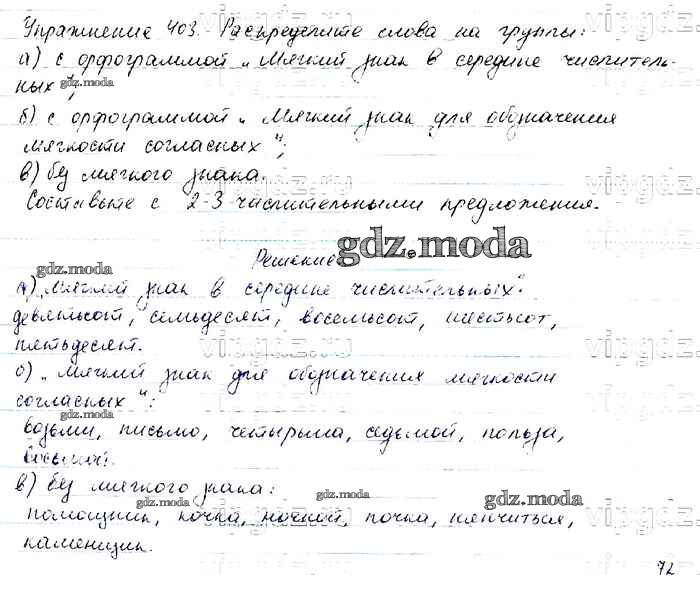 Упражнение 403. Распределите слова на группы:
а) с орфограммой „Мягкий знак в середине числитель-
ных";
gdz.moda
б) с орфограммой „Мягкий знак для обозначения
мягкости согласных";
gdz.moda
в) без мягкого знака.
vipgdz.ru
Составьте с 2-3 числительными предложения.
gdz.moda
Решение
gdz.moda
а) „Мягкий знак в середине числительных":
девятьсот, семьдесят, восемьсот, шестьсот,
пятьдесят.
vipgdz.ru
б) „Мягкий знак для обозначения мягкости
согласных":
gdz.moda
возьми, письмо, четырьмя, седьмой, польза,
восьмой.
в) без мягкого знака:
gdz.moda gdz.moda gdz.moda
помощник, кочка, ночной, почка, нянчиться,
каменщик.
vipgdz.ru
72